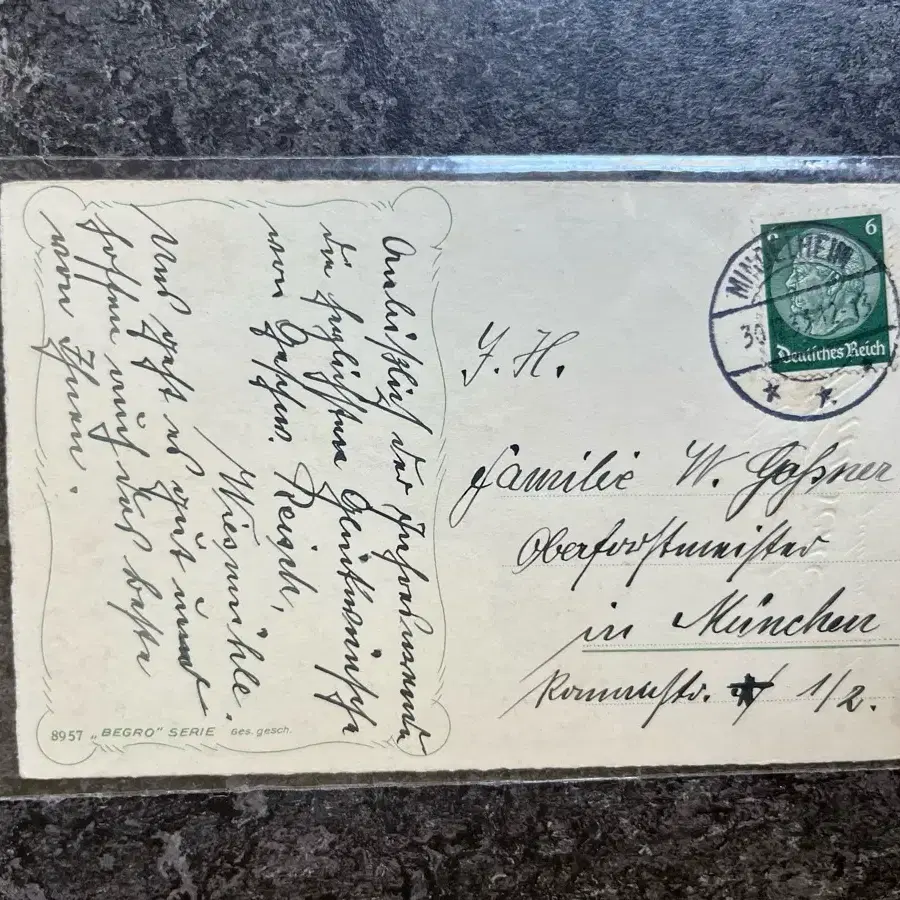 Anläßlich der Jahreswende
die herzlichsten Glückwünsche
von Geschw. Reisch,
Wiesmühle.
Uns geht es gut und
hoffen auch das beste
von Ihnen.
8957 „BEGRO" SERIE Ges. gesch.
6
MINDELHEIM
Deutsches Reich
Familie W. Gaßner
Oberforstmeister
in München
Romanstr. 1/2.